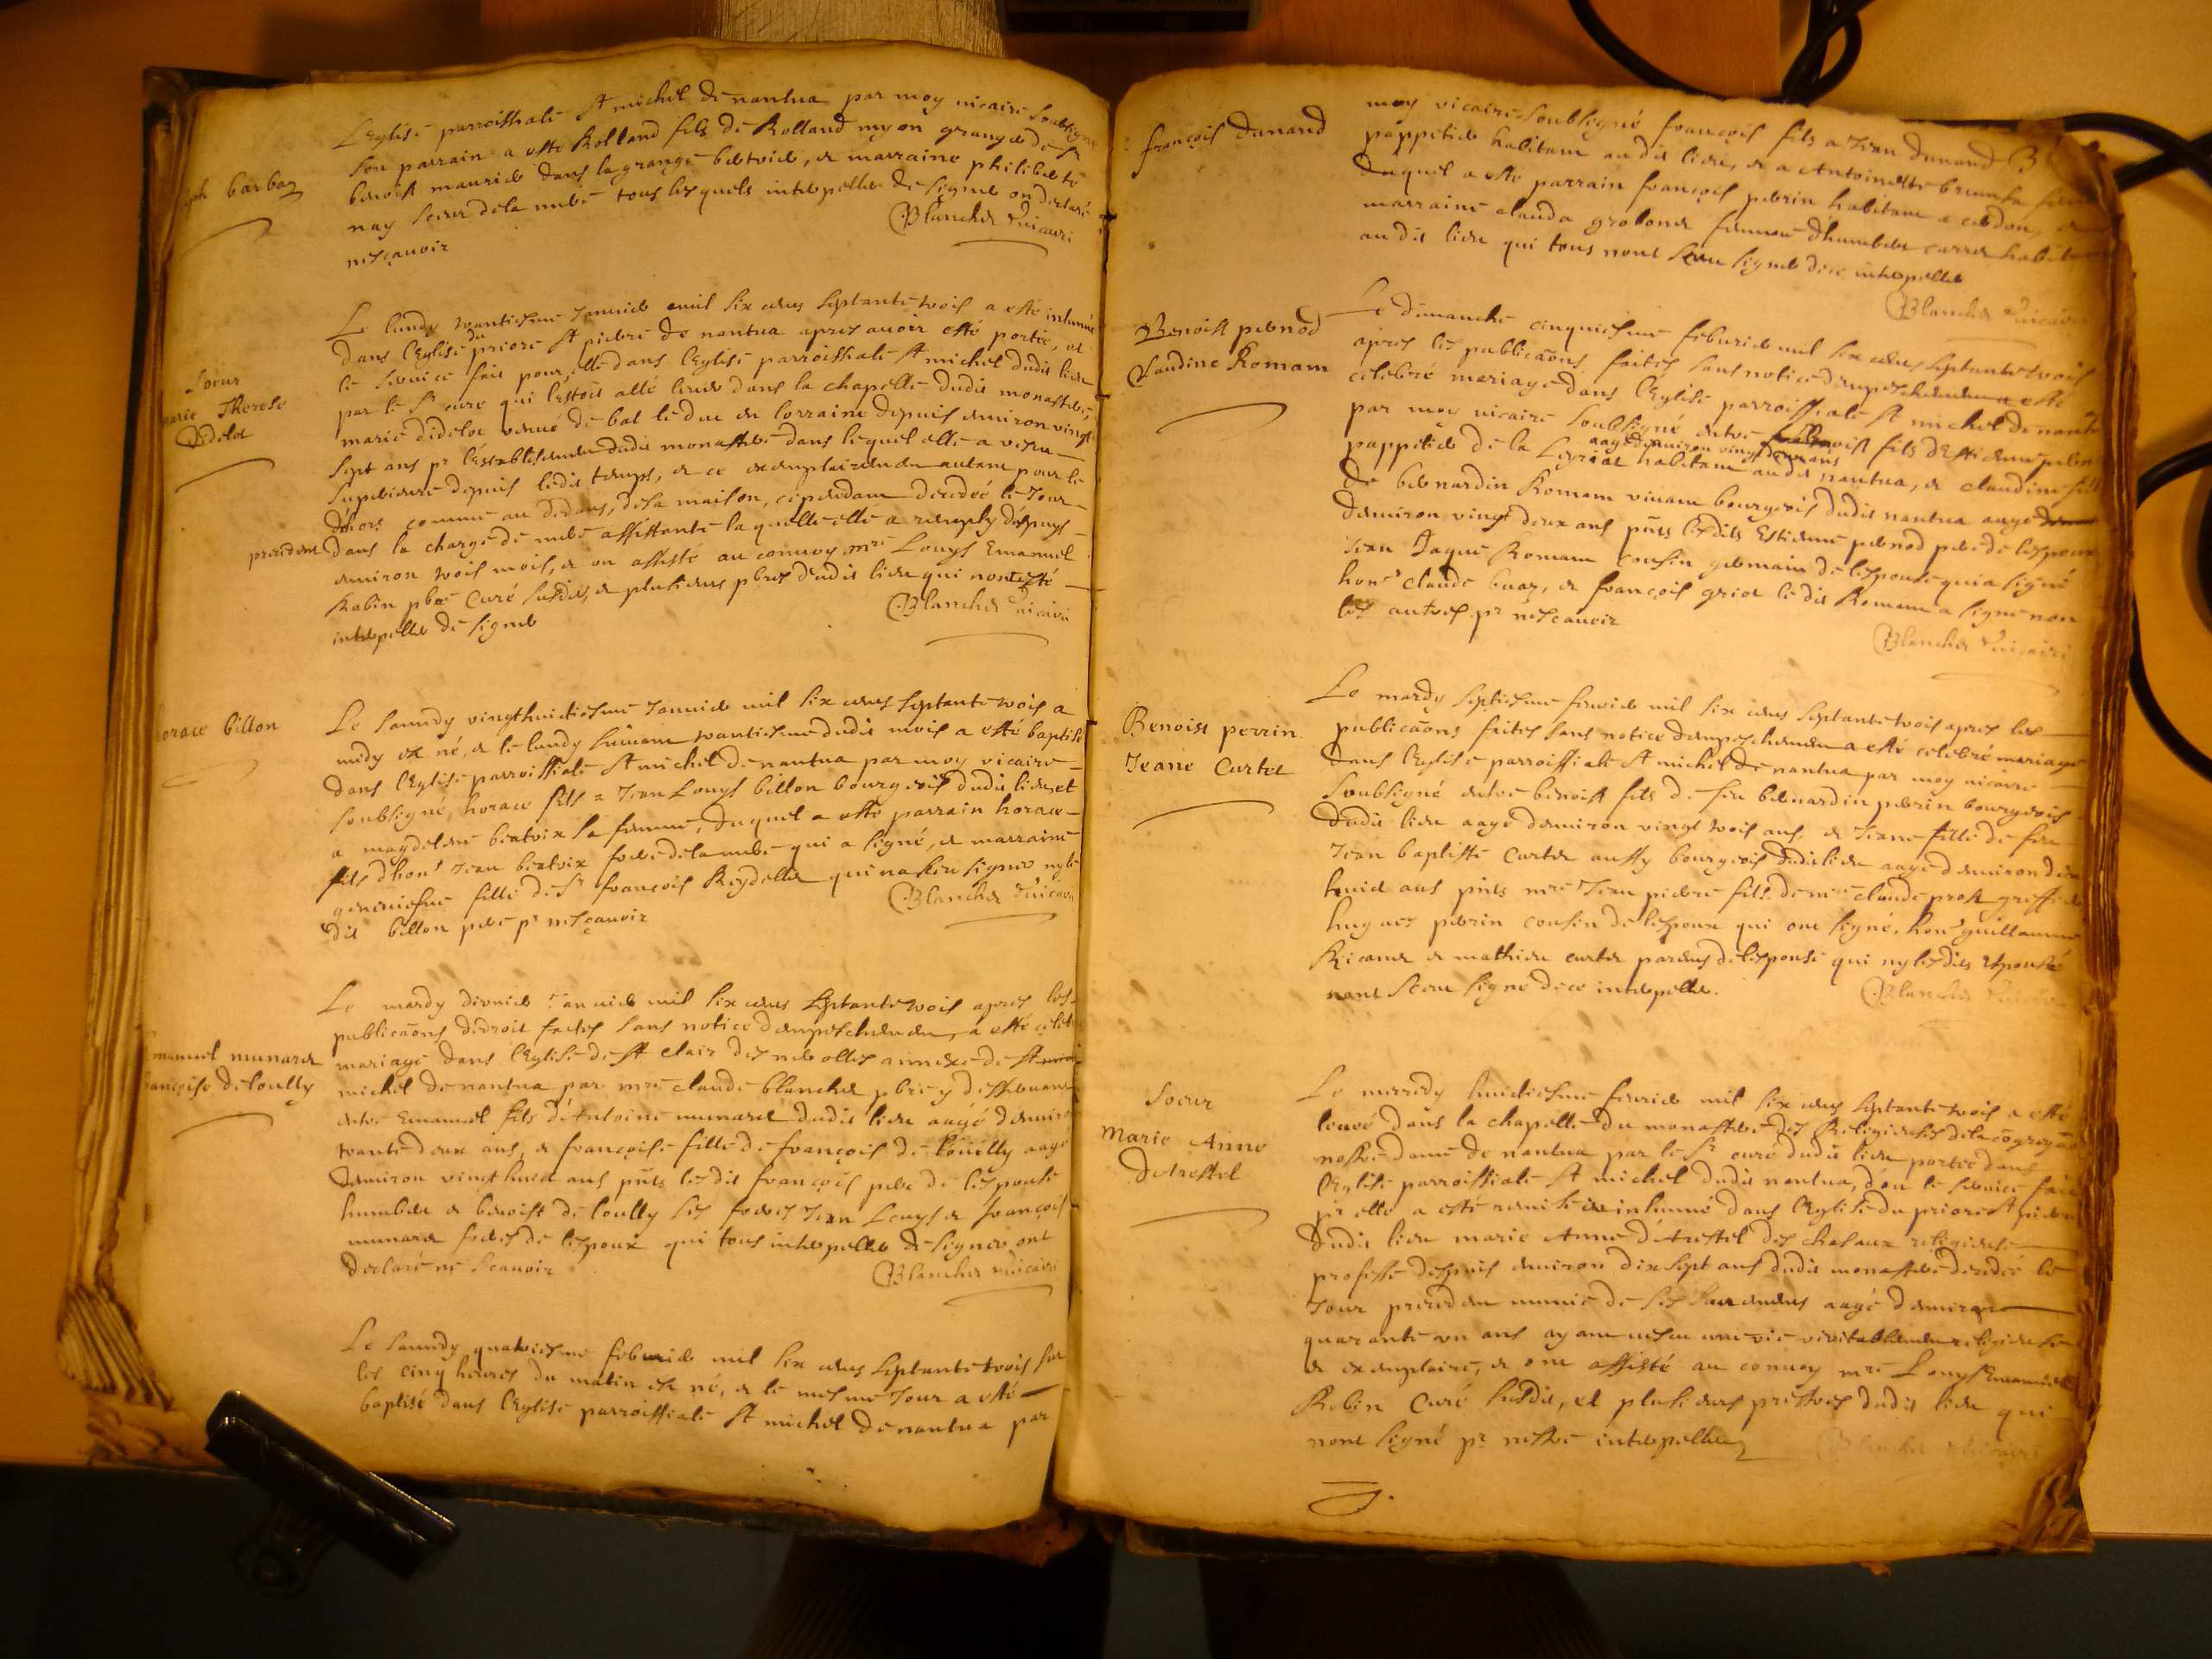 L'Eglise parroissiale St michel de nantua par moy vicaire soubsigné
son parrain a esté Rolland fils de Rolland myon granger de Sr
benoist maurier dans la grange, et marraine philiberte
nay soeur de la mere tous lesquels interpellés de signer on declaré
nesçavoir
Blanchet Vicaire
barbaz
Le lundy trantiesme Janvier mil six cens septante trois a esté inhumée
dans l'Eglise du prioré St pierre de nantua apres avoir esté portée, et
le service fait pour elle dans l'Eglise parroissiale St michel dudit lieu
par le Sr curé qui l'estoit allé lever dans la chapelle dudit monastere,
marie didelot venue de bal le duc en lorraine depuis environ vingt
sept ans pr l'establisement dudit monastere dans lequel elle a vescu
superieure depuis ledit temps, et ce exemplairement autant pour le
dehors comme au dedans, de sa maison, cependant decedée le Jour
precedent dans la charge de mere assistante laquelle elle a remply despuys
environ trois mois, et on assisté au convoy mre Louys Emanuel
Robin pbre Curé susdit, et plusieurs pbres dudit lieu qui nont esté
interpellés de signer
Blanchet Vicaire
Soeur
marie Therese
Didelot
Le samedy vingthuictiesme Janvier mil six cens septante trois a
midy est né, et le lundy suivant trantiesme dudit mois a esté baptisé
dans l'Eglise parroissiale St michel de nantua par moy vicaire
soubsigné, horace fils a Jean Louys billon bourgeois dudit lieu et
a magdelene beatrix sa femme, duquel a esté parrain horace
fils d'hont Jean beatrix frere de la mere qui a signé, et marraine
geneviefve fille de Sr françois Reydellet qui na sceu signer ny le
dit billon pere pr nesçavoir
Blanchet Vicaire
horace billon
Le mardy dernier Janvier mil six cens septante trois apres les
publicaons de droit faites sans notice d'empeschement, a esté celebré
mariage dans l'Eglise de St clair des nerolles annexe de St
michel de nantua par mre claude blanchet pbre y desservant
entre Emanuel fils d'Antoine munaret dudit lieu aagé d'environ
trante deux ans, et françoise fille de françois de loüilly aagé
d'environ vingt huict ans pñts ledit françois pere de l'espouse
humbert et benoist de loully ses freres Jean Louys et françois
munaret freres de l'espoux qui tous interpellés de signer ont
declaré ne sçavoir
Blanchet vicaire
Emanuel munaret
françoise de loully
Le samedy quatriesme febvrier mil six cens septante trois sur
les cinq heures du matin est né, et le mesme Jour a esté
baptisé dans l'Eglise parroissiale St michel de nantua par
moy vicaire soubsigné françois fils a Jean dunand
pappetier habitant audit lieu, et a Antoinette
duquel a esté parrain françois perrin habitant a cerdon, et
marraine clauda grobonet femme d'humbert carret habitant
audit lieu qui tous nont sceu signer de ce interpellés
Blanchet Vicaire
françois dunand
Le dimanche cinquiesme febvrier mil six cens septante trois
apres les publicaons faites sans notice d'empeschement a esté
celebré mariage dans l'Eglise parroissiale St michel de nantua
par moy vicaire soubsigné entre benoist fils d'Estienne pernod
aagé d'environ vingt
pappetier de la habitant audit nantua, et claudine fille
de bernardin Romam vivant bourgeois dudit nantua aagé
d'environ vingt deux ans pñts lesdits Estienne pernod pere de l'espoux
Jean Jaque Romam cousin germain de l'espouse qui a signé
hont claude buaz, et françois griot ledit Romam a signé non
les autres pr nesçavoir
Blanchet Vicaire
Benoist pernod
Claudine Romam
Le mardy septiesme fevrier mil six cens septante trois apres les
publicaons faites sans notice d'empeschement a esté celebré mariage
dans l'Eglise parroissiale St michel de nantua par moy vicaire
soubsigné entre benoist fils de feu bernardin perrin bourgeois
dudit lieu aagé d'environ vingt trois ans, et Jeane fille de feu
Jean baptiste Curtet aussy bourgeois dudit lieu aagé d'environ dix
huict ans pñts mre Jean pierre fils de mre claude prost greffier
hugues perrin cousin de l'espoux qui ont signé, hont guillaume
Ricanet et mathieu curtet parens de l'espouse qui ny lesdits espousés
nont sceu signer de ce interpellés.
Blanchet Vicaire
Benoist perrin
Jeane Curtet
Le mercredy huictiesme fevrier mil six cens septante trois a esté
levée dans la chapelle du monastere des Religieuses de la cõgregaõn
nostre dame de nantua par le Sr curé dudit lieu portée dans
l'Eglise parroissiale St michel dudit nantua, d'ou le service fait
pr elle a esté remise et inhumé dans l'Eglise du prioré St pierre
dudit lieu marie Anne d'Arestel des chasaux religieuse
professe despuis environ dix sept ans dudit monastere decedée le
Jour precedent munie de ses sacremens aagé d'environ
quarante un ans ayant vescu une vie veritablement religieuse
et exemplaire, et ont assisté au convoy mre Louys Emanuel
Robin Curé susdit, et plusieurs prestres dudit lieu qui
nont signé pr nestre interpellés
Blanchet Vicaire
Soeur
Marie Anne
d'Arestel